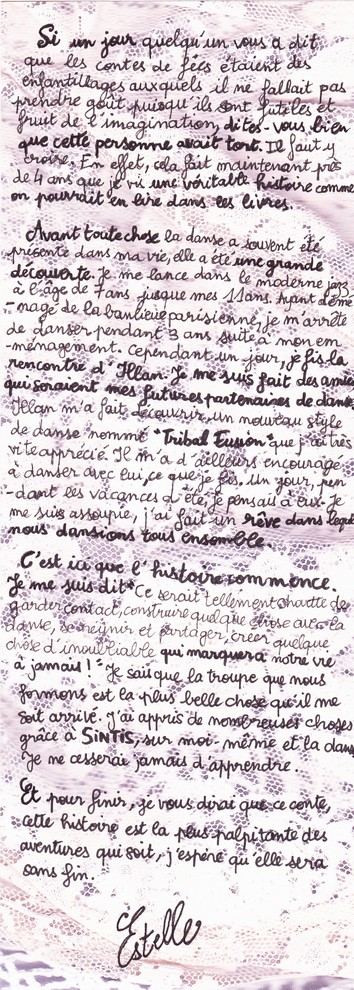 Si un jour quelqu'un vous a dit
que les contes de fées étaient des
enfantillages auxquels il ne fallait pas
prendre goût puisqu'ils sont futiles et
fruit de l'imagination, dites-vous bien
que cette personne avait tort. Il faut y
croire. En effet, cela fait maintenant près
de 4 ans que je vis une véritable histoire comme
on pourrait en lire dans les livres.
Avant toute chose la danse a souvent été
présente dans ma vie, elle a été une grande
découverte. Je me lance dans le moderne jazz
à l'âge de 7 ans jusque mes 11 ans. Ayant démé
-nagé de la banlieue parisienne, je m'arrête
de danser pendant 3 ans suite à mon em
-ménagement. Cependant un jour, je fis la
rencontre d'Illan. Je me suis fait des amies
qui seraient mes futures partenaires de danse
Illan m'a fait découvrir un nouveau style
de danse nommé "Tribal Fusion" que j'ai très
vite apprécié. Il m'a d'ailleurs encouragé
à danser avec lui, ce que je fis. Un jour, pen
-dant les vacances d'été, je pensais à eux. Je
me suis assoupie, j'ai fait un rêve dans lequel
nous dansions tous ensemble.
C'est ici que l'histoire commence.
Je me suis dit "Ce serait tellement chouette de
garder contact, construire quelque chose avec la
danse, se réunir et partager, créer quelque
chose d'inoubliable qui marquera notre vie
à jamais!" Je sais que la troupe que nous
formons est la plus belle chose qu'il me
soit arrivé. J'ai appris de nombreuses choses
grâce à SINTIS, sur moi-même et la danse
Je ne cesserai jamais d'apprendre.
Et pour finir, je vous dirai que ce conte,
cette histoire est la plus palpitante des
aventures qui soit, j'espère qu'elle sera
sans fin.
Estelle